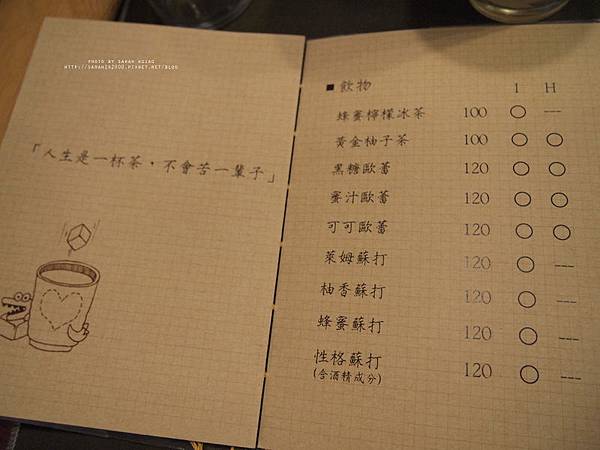 PHOTO BY SARAH HSIAO
HTTP://SARAHIN2900.PIXNET.NET/BLOG
「人生是一杯茶，不會苦一輩子」
■飲物 I H
蜂蜜檸檬冰茶 100 ○ ---
黃金柚子茶 100 ○ ○
黑糖歐蕾 120 ○ ○
蜜汁歐蕾 120 ○ ○
可可歐蕾 120 ○ ○
萊姆蘇打 120 ○ ---
柚香蘇打 120 ○ ---
蜂蜜蘇打 120 ○ ---
性格蘇打 120 ○ ---
(含酒精成分)